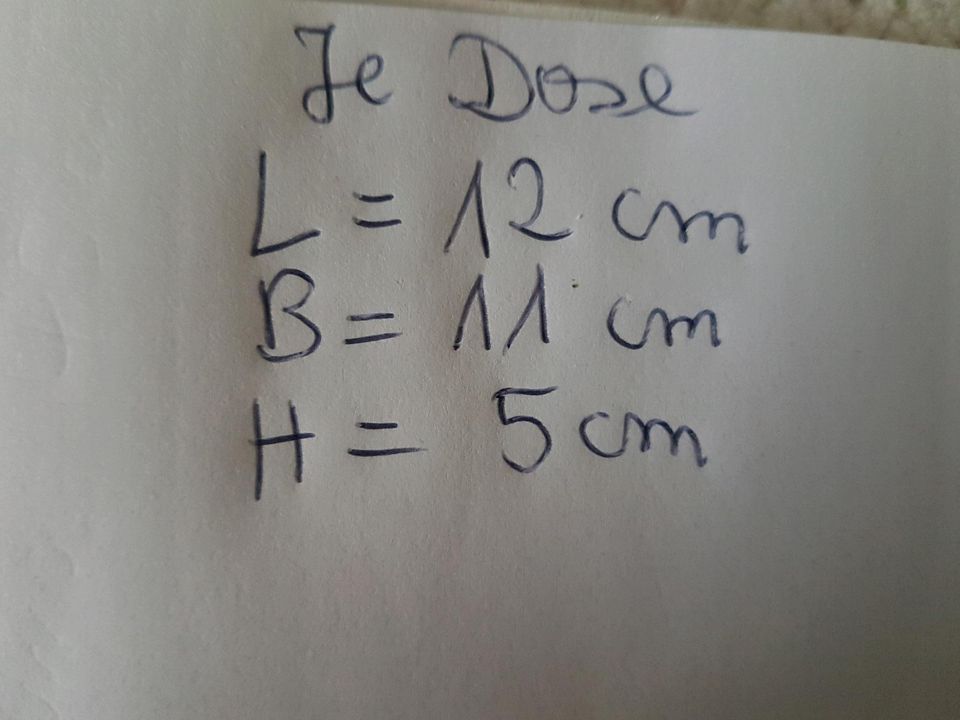 Je Dose
L = 12 cm
B = 11 cm
H = 5 cm